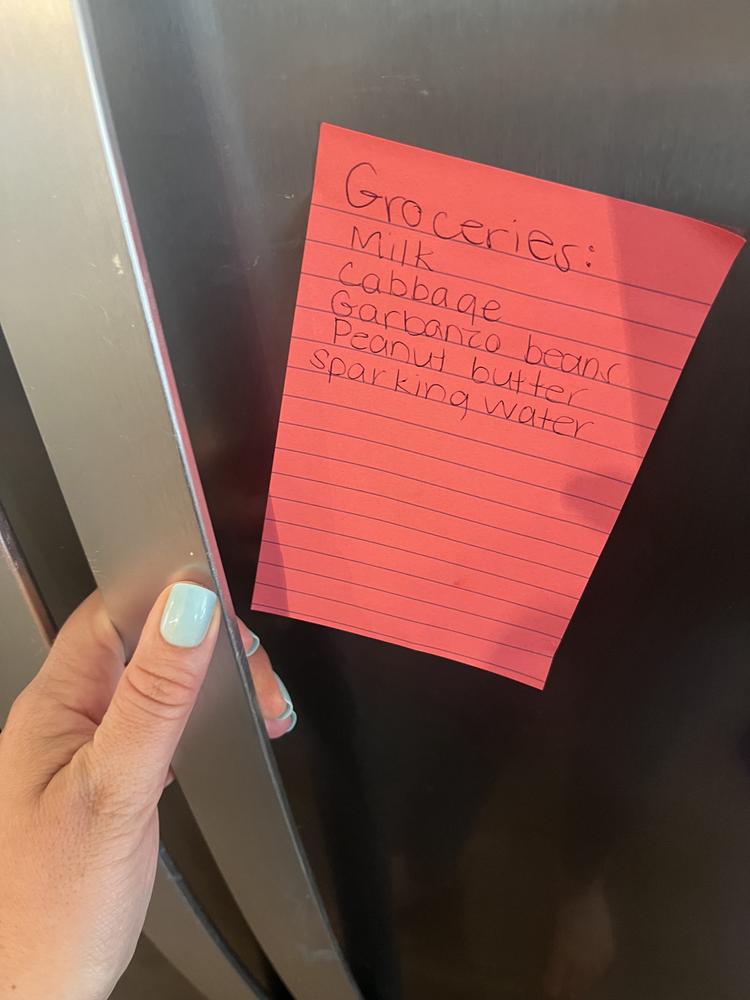 Groceries:
Milk
Cabbage
Garbanzo beans
Peanut butter
sparking water